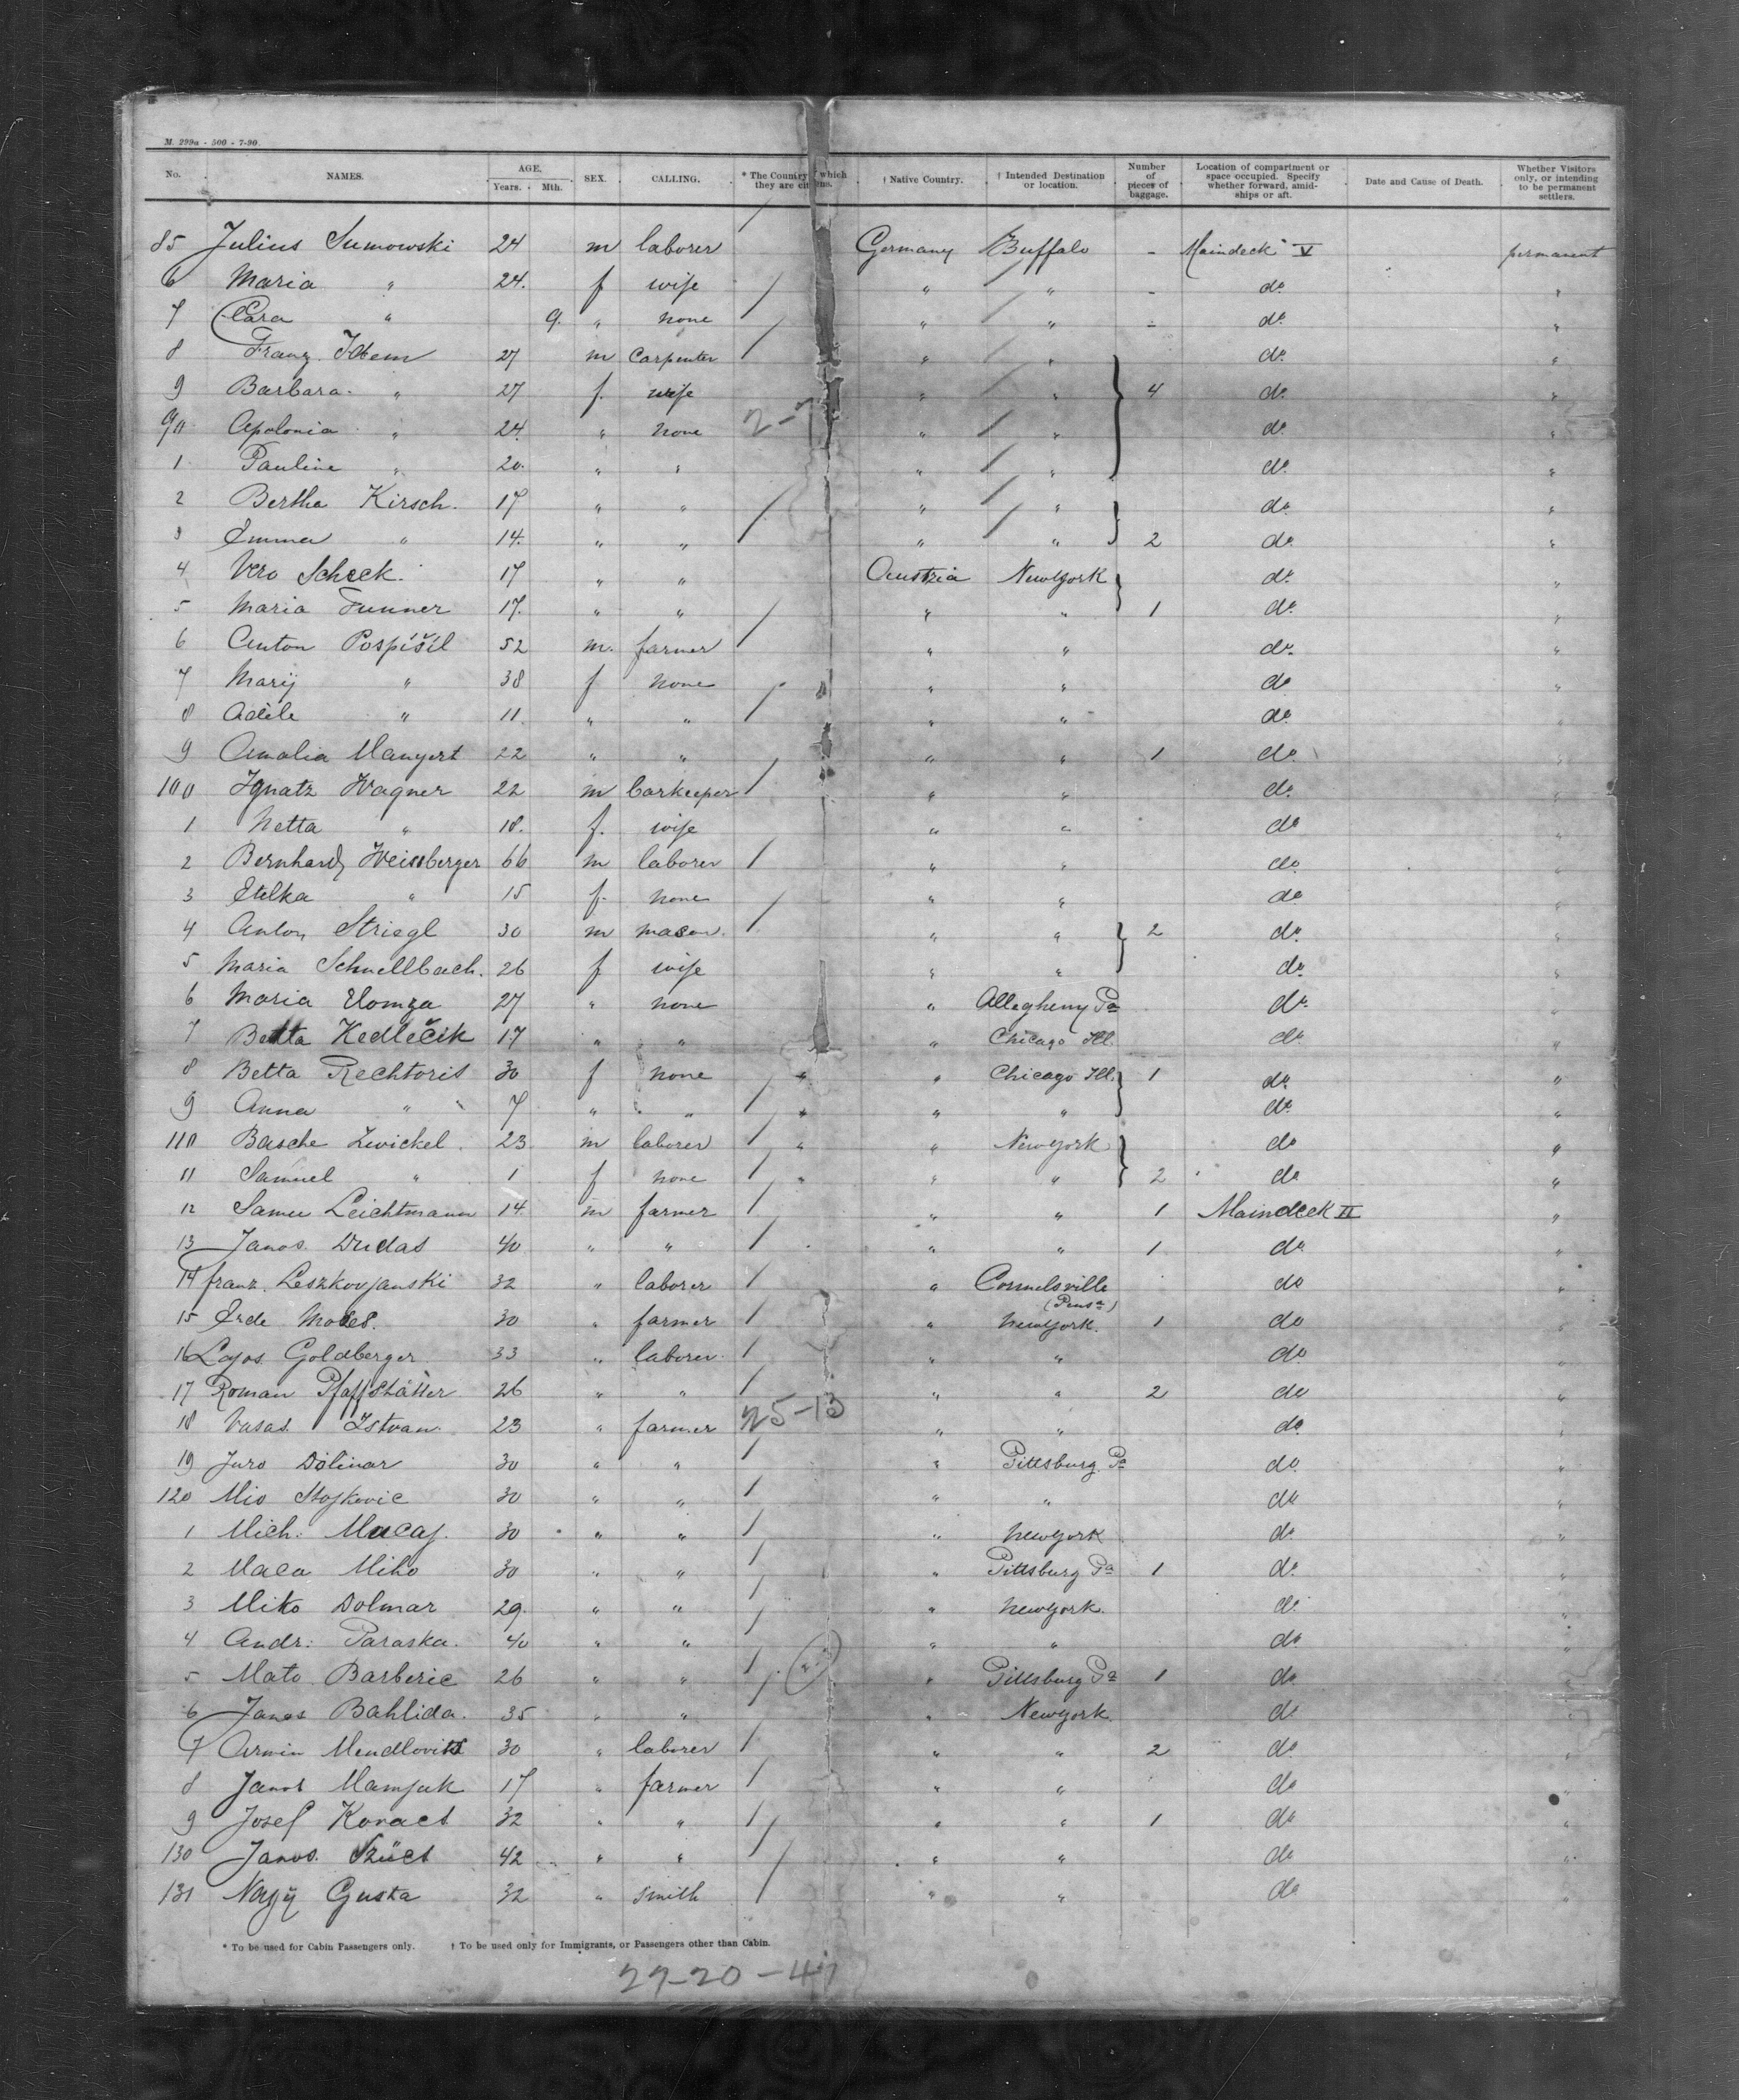 M. 299a - 500 - 7-90.
No. NAMES. AGE. Years. Mth. SEX. CALLING. * The Country of which they are citizens. † Native Country. † Intended Destination or location. Number of pieces of baggage. Location of compartment or space occupied. Specify whether forward, amidships or aft. Date and Cause of Death. Whether Visitors only, or intending to be permanent settlers.
85 Julius Sumowski 24 m laborer Germany Buffalo - Maindeck V permanent
6 Maria " 24. f wife " " - do. "
7 Clara " 9. " none " " - do. "
8 Franz Idem 27 m carpenter " " do. "
9 Barbara " 27 f. wife " " 4 do. "
90 Apolonia " 24. " none 2- " " do. "
1 Pauline " 20. " " " " do. "
2 Bertha Kirsch. 17 " " " " do. "
3 Emma " 14. " " " " 2 do. "
4 Vero Scheck. 17 " " Austria NewYork do. "
5 Maria Funner 17. " " " " 1 do. "
6 Anton Pospíšil 52 m. farmer " " do. "
7 Marij " 38 f none " " do "
8 Adele " 11. " " " " do. "
9 Amalia Mangert 22 " " " " 1 do. "
100 Ignatz Wagner 22 m barkeeper " " do. "
1 Netta " 18. f. wife " " do "
2 Bernhard Weissberger 66 m laborer " " do. "
3 Etelka " 15 f. none " " do "
4 Anton Striegl 30 m mason. " " 2 do. "
5 Maria Schnellbach. 26 f wife " " do. "
6 Maria 27 " none " Allegheny Pa do. "
7 Betta Kedlečik 17 " " " Chicago Ill. do. "
8 Betta Rechtoris 30 f none " " Chicago Ill. 1 do. "
9 Anna " 7 " " " " " do. "
110 Basche Zwickel. 23 m laborer " " NewYork do "
11 Samuel " 1 f none " " " 2 do "
12 Samu Leichtmann 14. m farmer " " 1 Maindeck II "
13 Janos Dudas 40 " " " " 1 do. "
14 franz. Leszkovjanski 32 " laborer " Connelsville (Pensa) do "
15 Erde Moses. 30 " farmer " NewYork. 1 do "
16 Lajos. Goldberger 33 " laborer " " do "
17 Roman Pfaffstätter 26 " " " " 2 do "
18 Vasas Istvan. 23 " farmer 25-13 " " do. "
19 Juro Dolinar 30 " " " Pittsburg. Pa do. "
120 Mio Stojkovic 30 " " " " do "
1 Mich. Macaj. 30 " " " NewYork do. "
2 Maca Miho 30 " " " Pittsburg Pa 1 do. "
3 Miko Dolmar 29. " " " NewYork. do. "
4 Andr. Paraska. 40 " " " " do "
5 Mato Barberic 26 " " " Pittsburg Pa 1 do. "
6 Janos Bahlida. 35 " " " NewYork. do. "
7 Armin Mendlovits 30 " laborer " " 2 do. "
8 Janos Mamjuk 17 " farmer " " do "
9 Josef Kovacs 32 " " " " 1 do. "
130 Janos. Szücs 42 " " " " do "
131 Nagÿ Guska 32 " smith " " do "
* To be used for Cabin Passengers only. † To be used only for Immigrants, or Passengers other than Cabin.
27-20-47